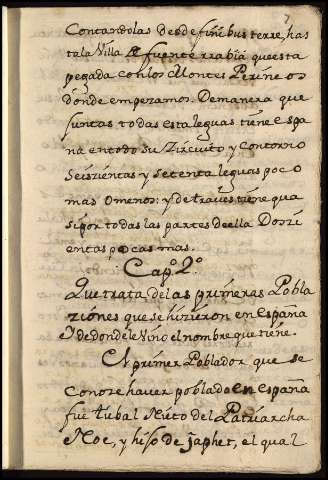 7
Contandolas desde finibus terre, has
ta la Villa de fuente rrabia que esta
pegada con los Montes Perineos
dônde empezamos. De manera que
juntas todas esta leguas tiene espa
ña en todo su Zircuito y contorno
seiszientas y setenta leguas poco
mas omenos: y de traves tiene qua
si por todas las partes de ella Doszi
entas pocas mas.
Capº. 2º.
Que trata de las primeras Pobla
ziones que se hizieron en España
Y de donde le Vino el nombre que tiene.
El primer Poblador que se
conoze haver poblado en España
fue tubal Nieto del Patriarcha
Noe, y hijo de japhet, el qual